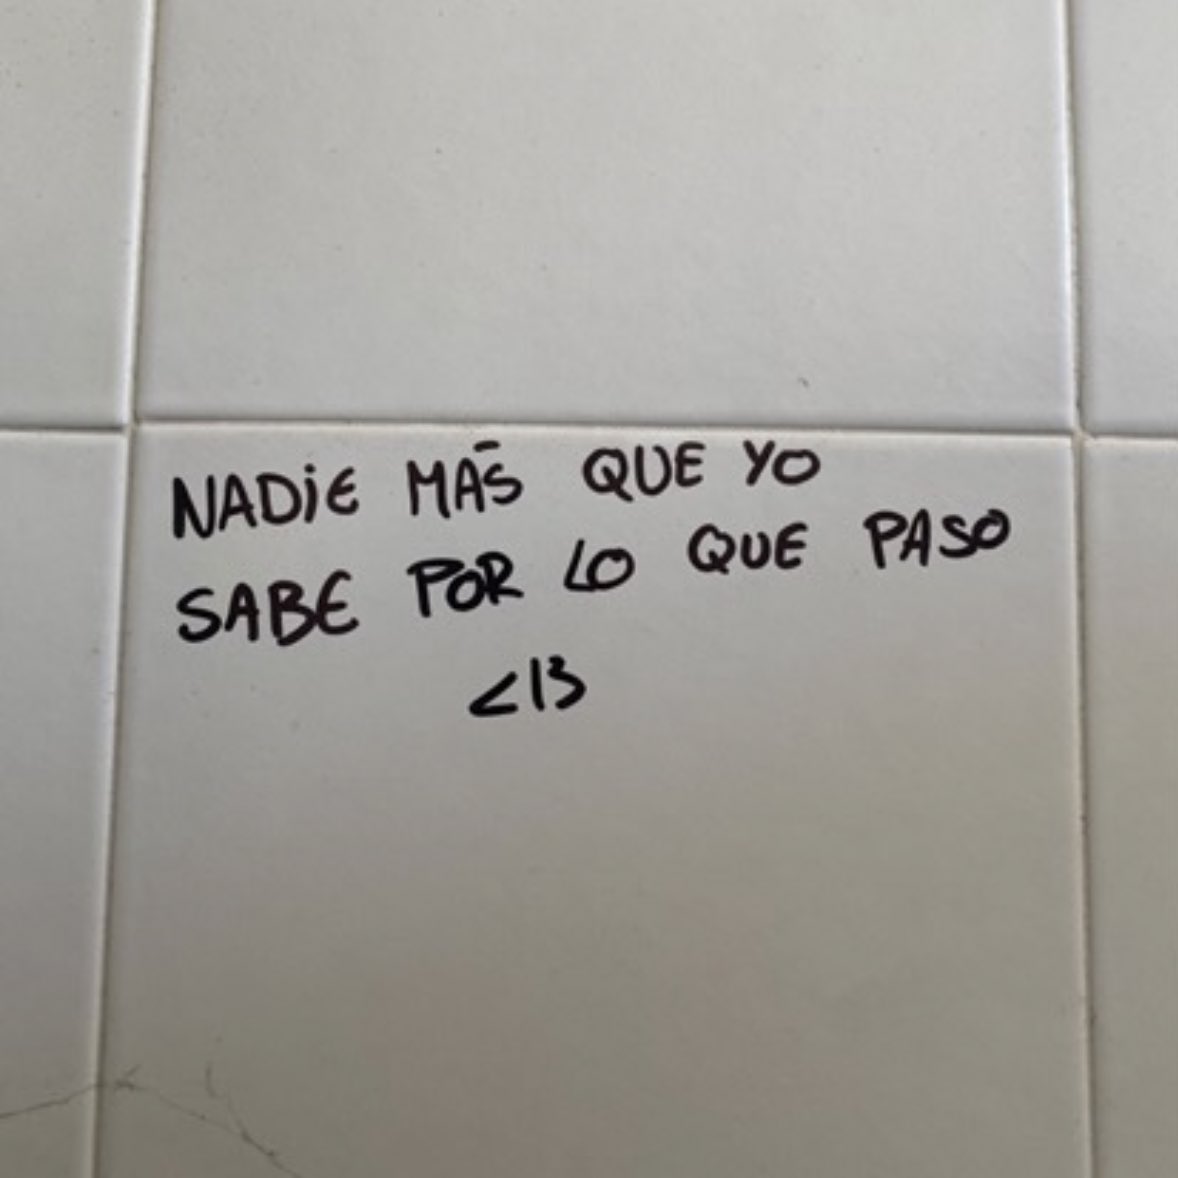 NADiE MÁS QUE YO
SABE POR LO QUE PASO
<|3